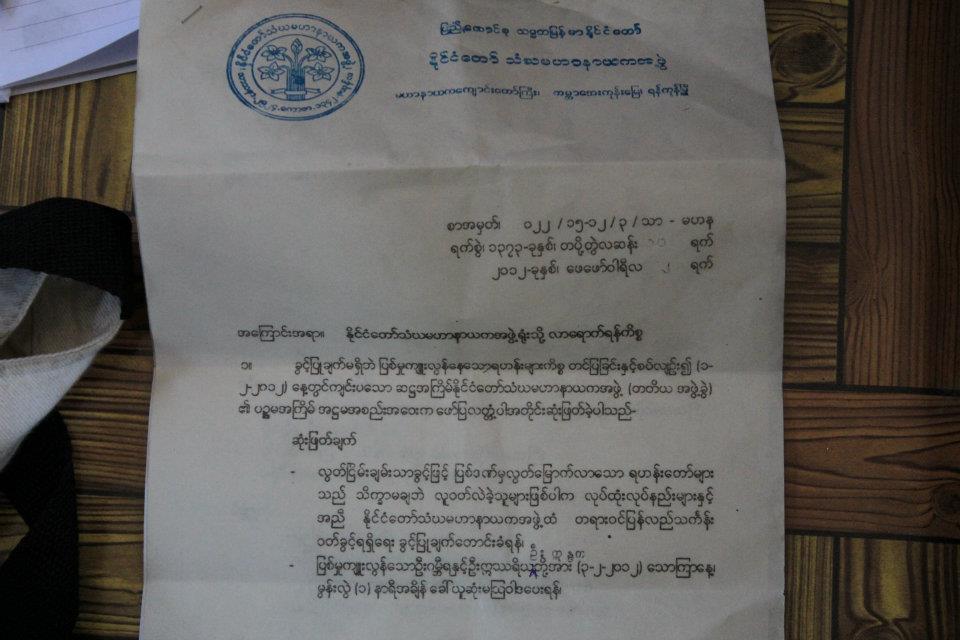 ပြည်ထောင်စု သမ္မတမြန်မာနိုင်ငံတော်
နိုင်ငံတော် သံဃမဟာနာယကအဖွဲ့
မဟာနာယကကျောင်းတော်ကြီး၊ ကမ္ဘာအေးကုန်းမြေ၊ ရန်ကုန်မြို့
နိုင်ငံတော်သံဃမဟာနာယကအဖွဲ့
စာအမှတ်၊ ၀၂၂ / ၁၅-၁၂ / ၃ / သာ - မဟန
ရက်စွဲ၊ ၁၃၇၃-ခုနှစ်၊ တပို့တွဲလဆန်း ရက်
၂၀၁၂-ခုနှစ်၊ ဖေဖော်ဝါရီလ ၂ ရက်
အကြောင်းအရာ။ နိုင်ငံတော်သံဃမဟာနာယကအဖွဲ့ရုံးသို့ လာရောက်ရန်ကိစ္စ
၁။ ခွင့်ပြုချက်မရှိဘဲ ပြစ်မှုကျူးလွန်နေသောရဟန်းများကိစ္စ တင်ပြခြင်းနှင့်စပ်လျဉ်း၍ (၁-
၂-၂၀၁၂) နေ့တွင်ကျင်းပသော ဆဋ္ဌအကြိမ်နိုင်ငံတော်သံဃမဟာနာယကအဖွဲ့ (တတိယ အဖွဲ့ခွဲ)
၏ ပဉ္စမအကြိမ် အဋ္ဌမအစည်းအဝေးက ဖော်ပြလတ္တံ့ပါအတိုင်းဆုံးဖြတ်ခဲ့ပါသည်-
ဆုံးဖြတ်ချက်
- လွတ်ငြိမ်းချမ်းသာခွင့်ဖြင့် ပြစ်ဒဏ်မှလွတ်မြောက်လာသော ရဟန်းတော်များ
သည် သိက္ခာမချဘဲ လူဝတ်လဲခဲ့သူများဖြစ်ပါက လုပ်ထုံးလုပ်နည်းများနှင့်
အညီ နိုင်ငံတော်သံဃမဟာနာယကအဖွဲ့ထံ တရားဝင်ပြန်လည်သင်္ကန်း
ဝတ်ခွင့်ရရှိရေး ခွင့်ပြုချက်တောင်းခံရန်၊
- ပြစ်မှုကျူးလွန်သောဦးဂမ္ဘီရနှင့်ဦးဣဿရိယတို့အား (၃-၂-၂၀၁၂) သောကြာနေ့၊
မွန်းလွဲ (၁) နာရီအချိန် ခေါ်ယူဆုံးမဩဝါဒပေးရန်၊